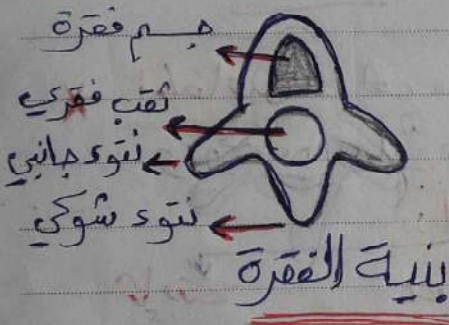 جسم فقرة
ثقب فقري
نتوء جانبي
نتوء شوكي
بنية الفقرة